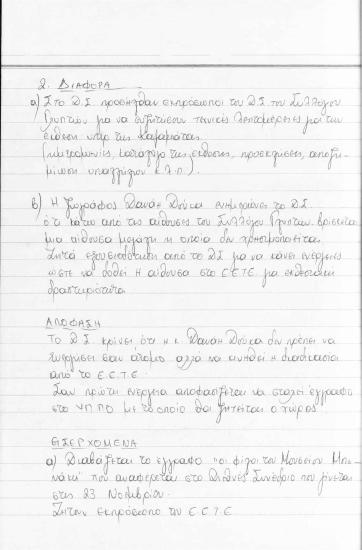 2. ΔΙΑΦΟΡΑ
α) Στο Δ.Σ. προσήλθαν εκπρόσωποι του Δ.Σ. του Συλλόγου
Γλυπτών για να συζητήσουν τεχνικές λεπτομέρειες για την
έκθεση υπέρ της Καλαμάτας.
(μεταφορές, κατάλογο της έκθεσης, προσκλήσεις, αποζη-
μίωση υπαλλήλων κ.λ.π.).
β) Η ζωγράφος Δανάη Δούκα ενημερώνει το Δ.Σ.
ότι κάτω από τις αίθουσες του Συλλόγου Γλυπτών βρίσκεται
μια αίθουσα μεγάλη η οποία δεν χρησιμοποιείται.
Ζητά εξουσιοδότηση από το Δ.Σ για να κάνει ενέργειες
ώστε να δοθεί η αίθουσα στο Ε.Ε.Τ.Ε. για εκθεσιακή
δραστηριότητα.
ΑΠΟΦΑΣΗ
Το Δ.Σ. κρίνει ότι η κ. Δανάη Δούκα δεν πρέπει να
ενεργήσει σαν άτομο αλλά να κινηθεί η διαδικασία
από το Ε.Ε.Τ.Ε.
Σαν πρώτη ενέργεια αποφασίζεται να σταλεί έγγραφο
στο ΥΠΠΟ με το οποίο θα ζητείται ο χώρος.
ΕΙΣΕΡΧΟΜΕΝΑ
α) Διαβάζεται το έγγραφο "οι φίλοι του Μουσείου Μπε-
νάκη" που αναφέρεται στο Διεθνές Συνέδριο που γίνεται
στις 23 Νοεμβρίου.
Ζητούν εκπρόσωπο του Ε.Ε.Τ.Ε